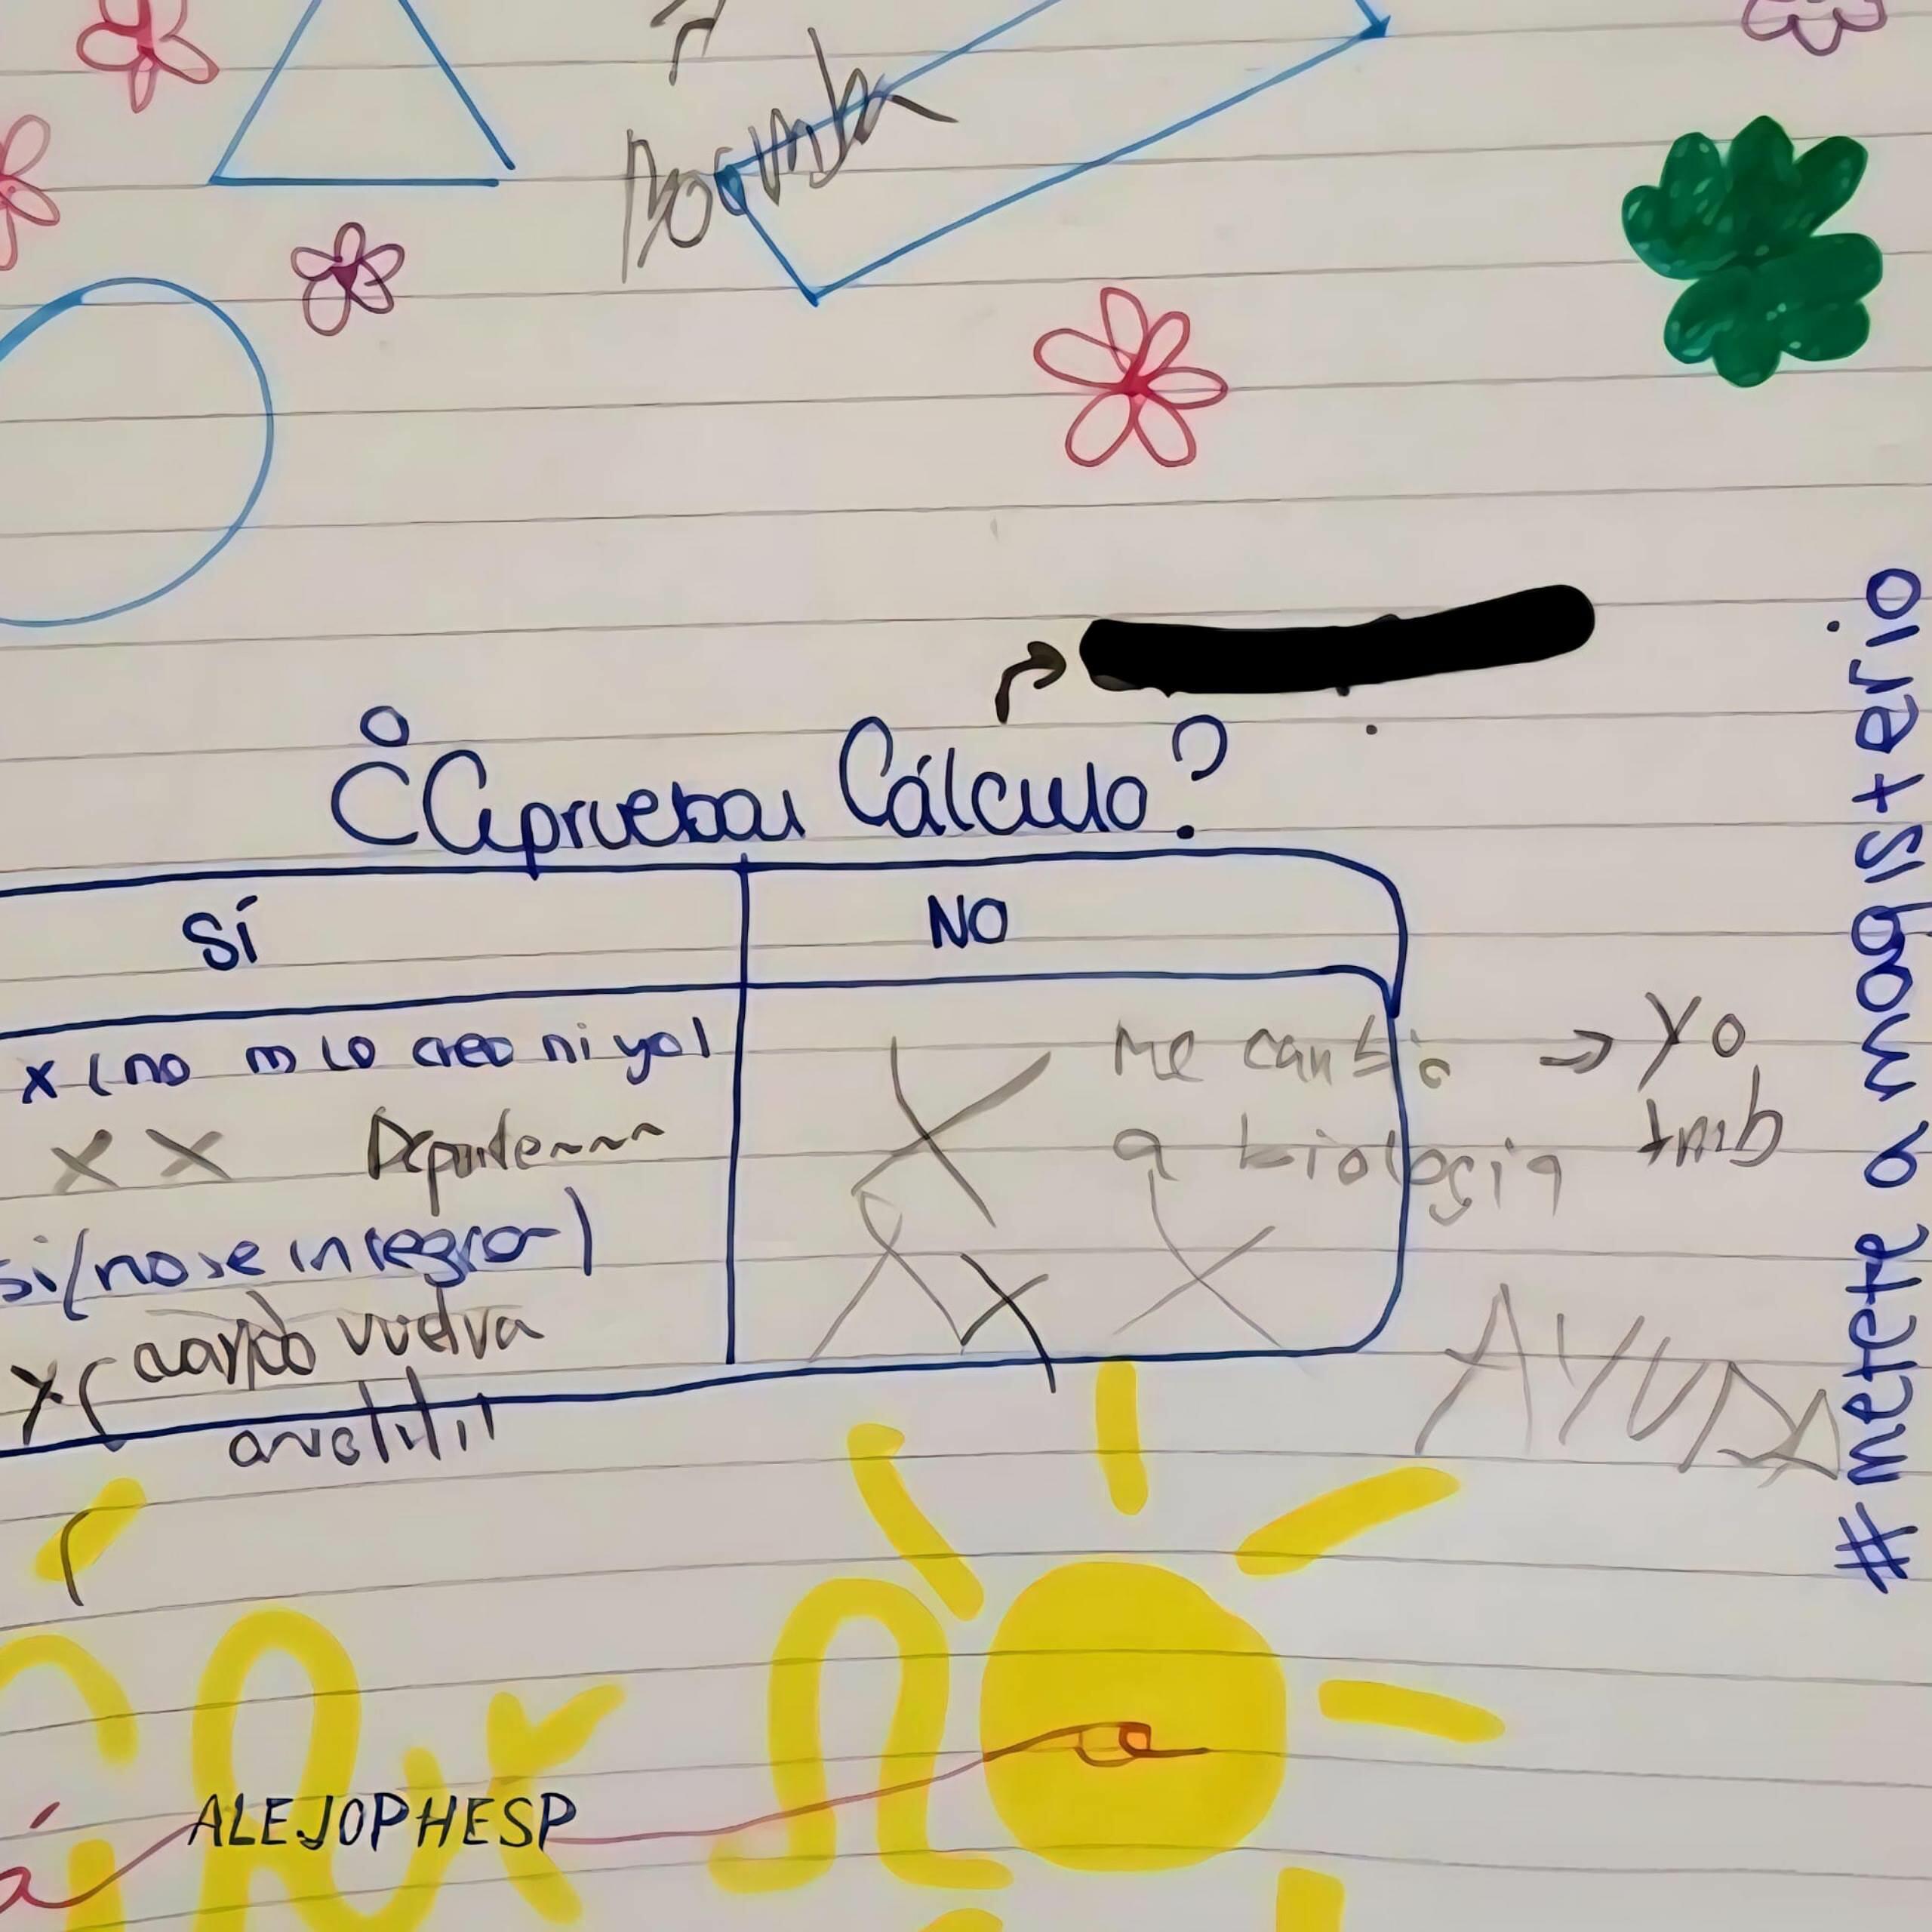 ¿Apruebas Cálculo?
SÍ
NO
x (no m lo creo ni yo)
x x
si (no se integrar)
x ( cuando vuelva
x
x
x
x
Me cambio
a biologia
→ Yo
tmb
AYUDA
#metete a magisterio
ALEJOPHESP